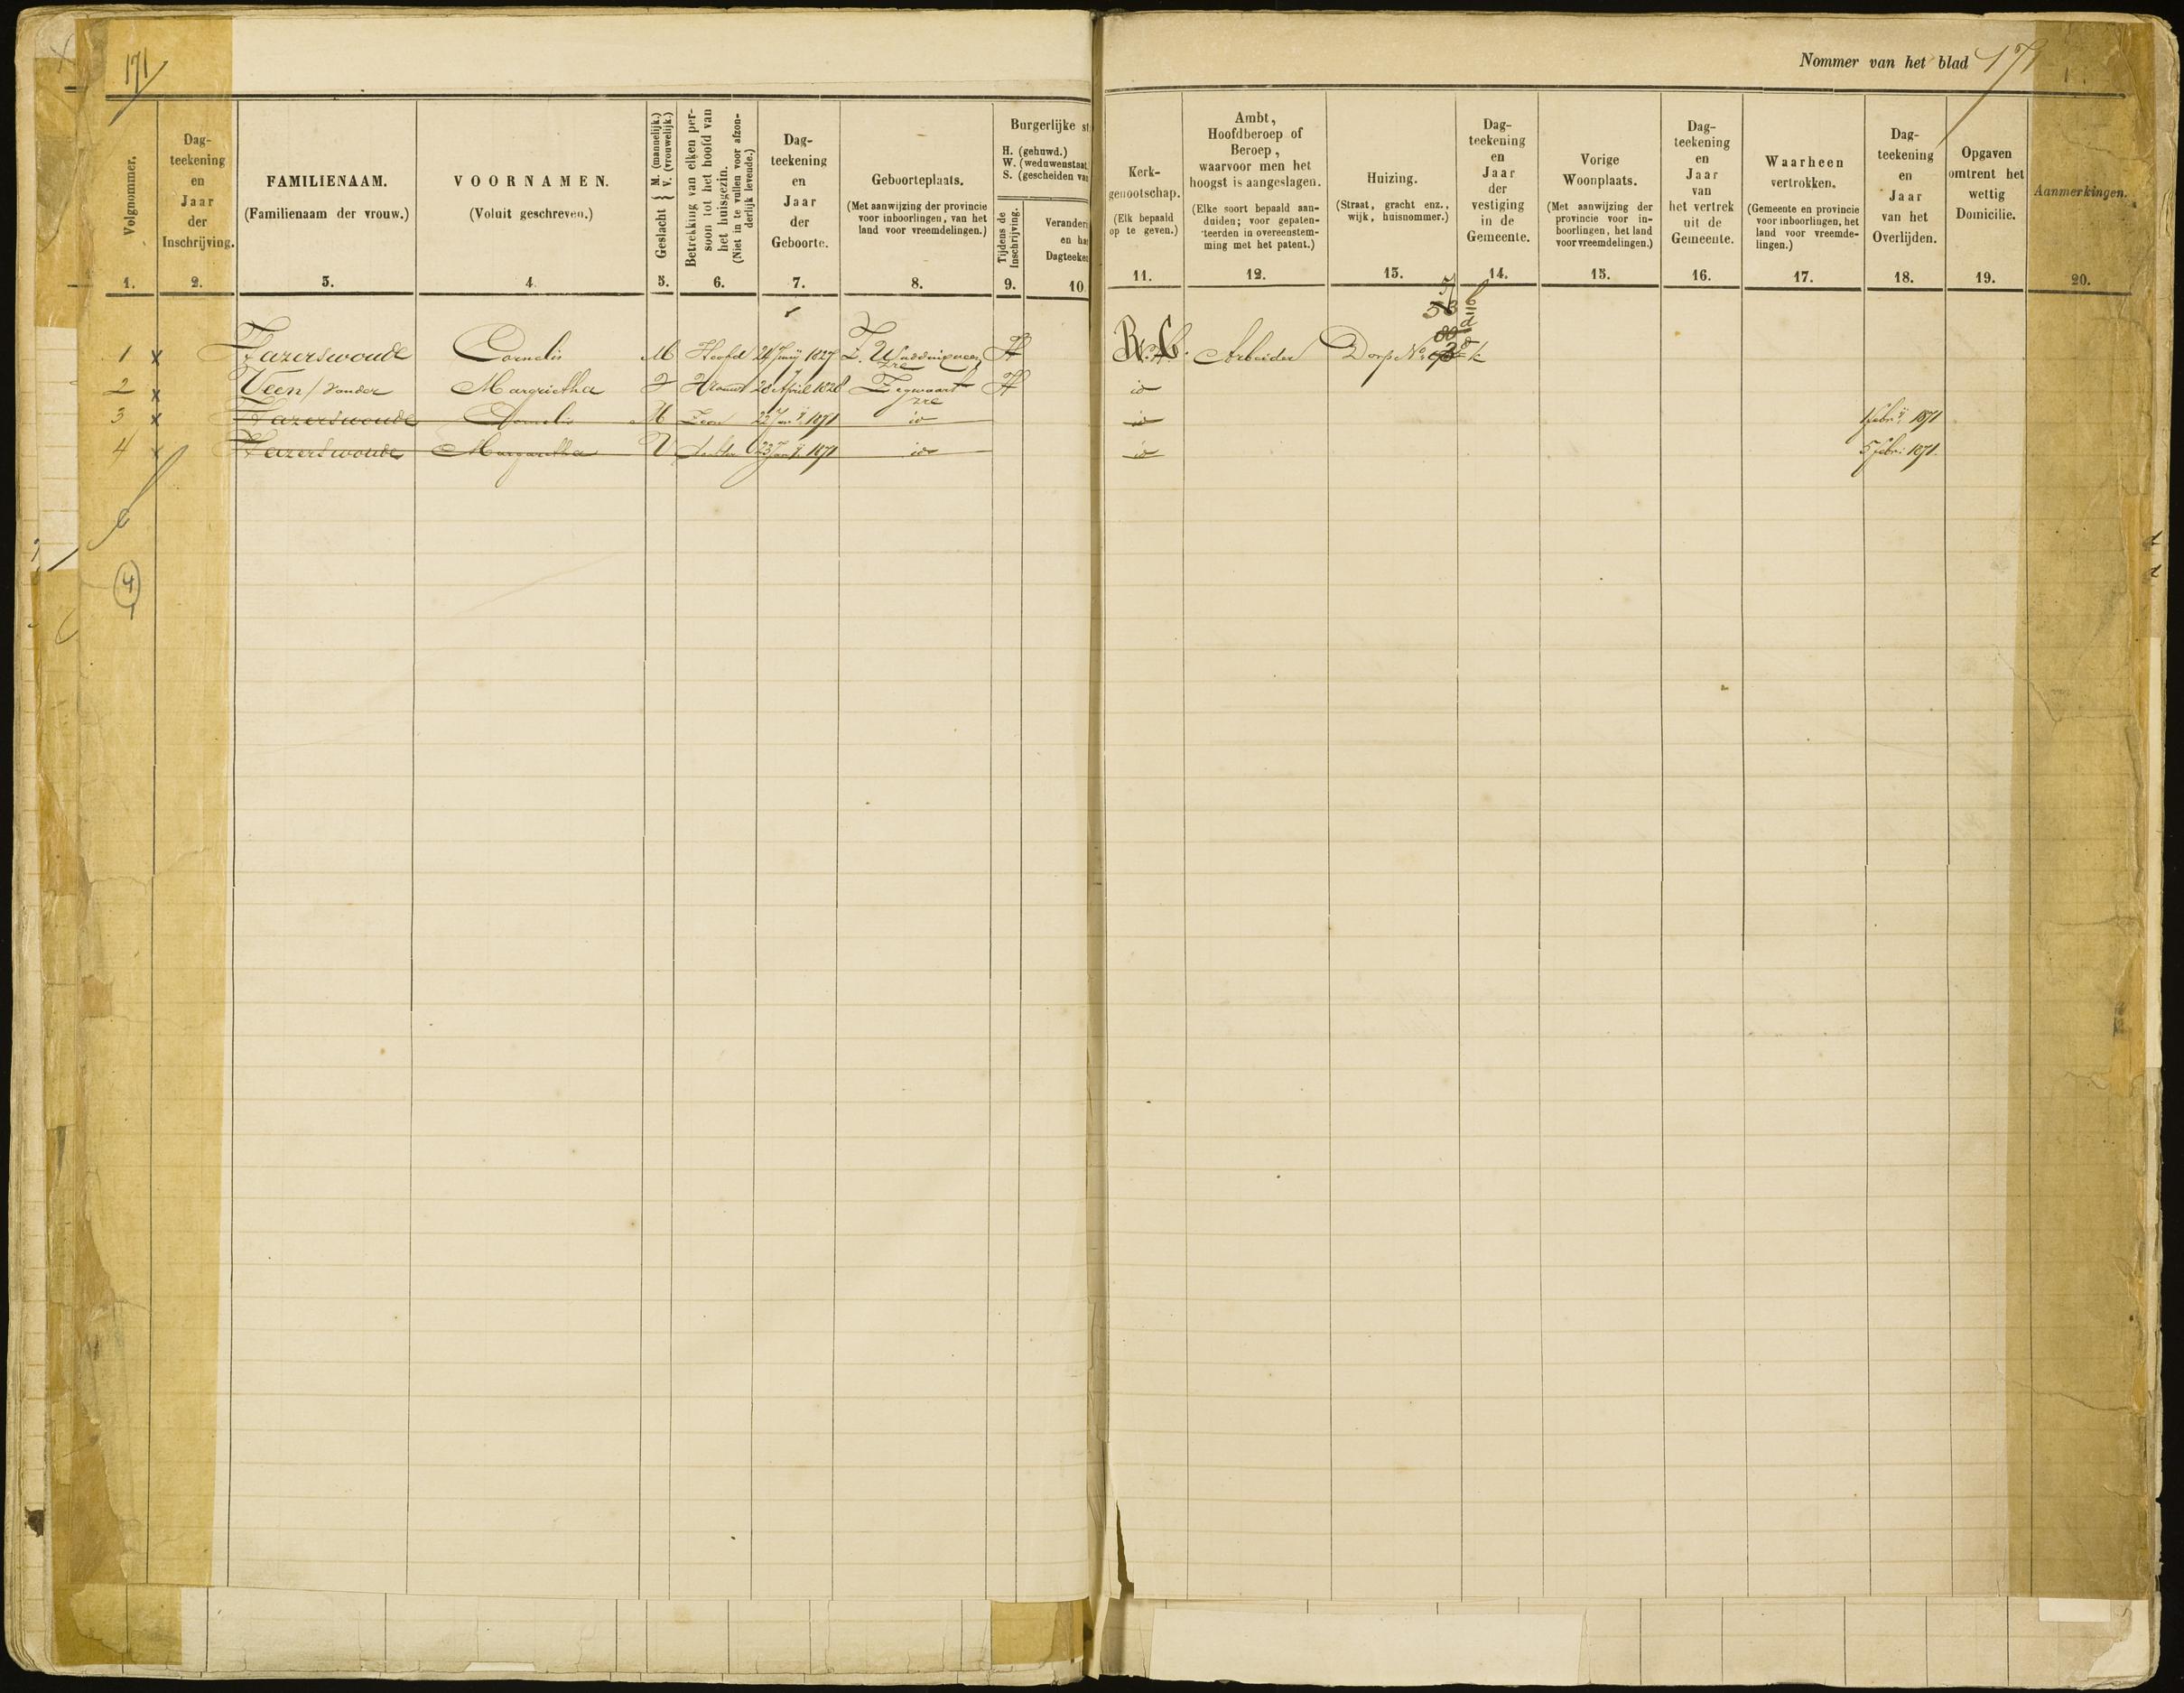 171
Nommer van het blad 171
Volgnommer.
1.
Dag-
teekening
en
Jaar
der
Inschrijving.
2.
FAMILIENAAM.
(Familienaam der vrouw.)
3.
VOORNAMEN.
(Voluit geschreven.)
4.
Geslacht { M. (mannelijk.)
V. (vrouwelijk.)
5.
Betrekking van elken per-
soon tot het hoofd van
het huisgezin.
(Niet in te vullen voor afzon-
derlijk levende.)
6.
Dag-
teekening
en
Jaar
der
Geboorte.
7.
Geboorteplaats.
(Met aanwijzing der provincie
voor inboorlingen, van het
land voor vreemdelingen.)
8.
Burgerlijke st
H. (gehuwd.)
W. (weduwenstaat
S. (gescheiden van
Tijdens de
Inschrijving.
9.
Verander
en ha
Dagteeke
10
Kerk-
genootschap.
(Elk bepaald
op te geven.)
11.
Ambt,
Hoofdberoep of
Beroep,
waarvoor men het
hoogst is aangeslagen.
(Elke soort bepaald aan-
duiden; voor gepaten-
teerden in overeenstem-
ming met het patent.)
12.
Huizing.
(Straat, gracht enz.,
wijk, huisnommer.)
13.
Dag-
teekening
en
Jaar
der
vestiging
in de
Gemeente.
14.
Vorige
Woonplaats.
(Met aanwijzing der
provincie voor in-
boorlingen, het land
voor vreemdelingen.)
15.
Dag-
teekening
en
Jaar
van
het vertrek
uit de
Gemeente.
16.
Waarheen
vertrokken.
(Gemeente en provincie
voor inboorlingen, het
land voor vreemde-
lingen.)
17.
Dag-
teekening
en
Jaar
van het
Overlijden.
18.
Opgaven
omtrent het
wettig
Domicilie.
19.
Aanmerkingen.
20.
1 x Hazerswoude Cornelis M Hoofd 24 Junij 1827 Z. Waddinxveen H R.C. Arbeider Dorp No
2 x Veen / vander Margrietha V Vrouw 20 April 1828 Zegwaart H id
3 x Hazerswoude Cornelis M Zoon 23 Jan 1871 id id 1 febr 1871
4 x Hazerswoude Margaretha V dochter 23 Jan 1871 id id 5 febr. 1871
4